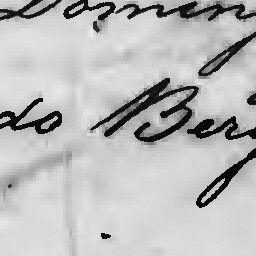 Doming
do Berg